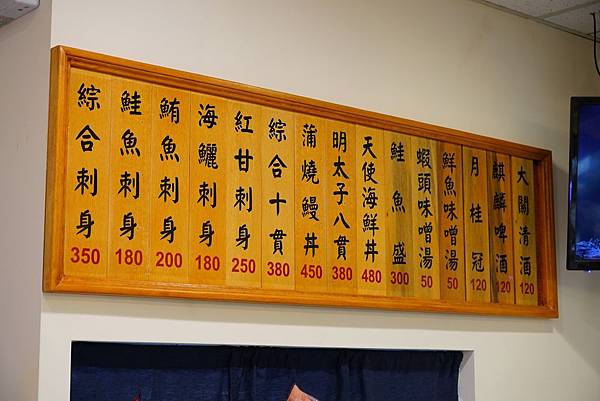 綜合刺身 350
鮭魚刺身 180
鮪魚刺身 200
海鱺刺身 180
紅甘刺身 250
綜合十貫 380
蒲燒鰻丼 450
明太子八貫 380
天使海鮮丼 480
鮭魚盛 300
蝦頭味噌湯 50
鮮魚味噌湯 50
月桂冠 120
麒麟啤酒 120
大關清酒 120